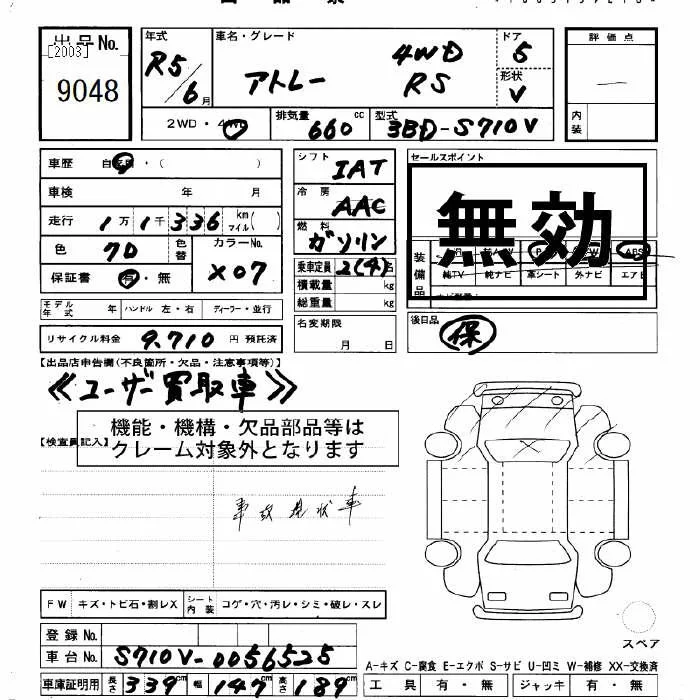 出品No.
[2003]
9048
年式
R5/6月
車名・グレード
アトレー 4WD RS
ドア
5
形状
V
評価点
内装
2WD・4WD
排気量 660 cc
型式 3BD-S710V
車歴 自家用・( )
車検 年 月
走行 1万1千336 km マイル( )
色 クロ
色替
カラーNo. X07
保証書 有・無
モデル年式 年 ハンドル 左・右 ディーラー・並行
リサイクル料金 9,710 円 預託済
シフト IAT
冷房 AAC
燃料 ガソリン
乗車定員 2(4)名
積載量 kg
総重量 kg
名変期限
月 日
セールスポイント
無効
装備品
純TV 純ナビ 革シート 外ナビ エアB
後日品
保
【出品店申告欄(不良箇所・欠品・注意事項等)】
≪ユーザー買取車≫
【検査員記入】
機能・機構・欠品部品等は
クレーム対象外となります
事故現状車
FW キズ・トビ石・割レX シート内装 コゲ・穴・汚レ・シミ・破レ・スレ
登録No.
車台No. S710V-0056525
車庫証明用 長さ 339cm 幅 147cm 高さ 189cm
スペア
A-キズ C-腐食 E-エクボ S-サビ U-凹ミ W-補修 XX-交換済
工具 有・無 ジャッキ 有・無